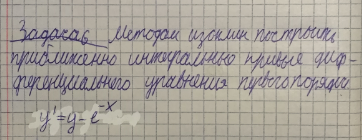 Задача6 Методом изоклин построить
приближенно интегральные кривые диф-
ференциального уравнения первого порядка
y' = y - e^{-x}